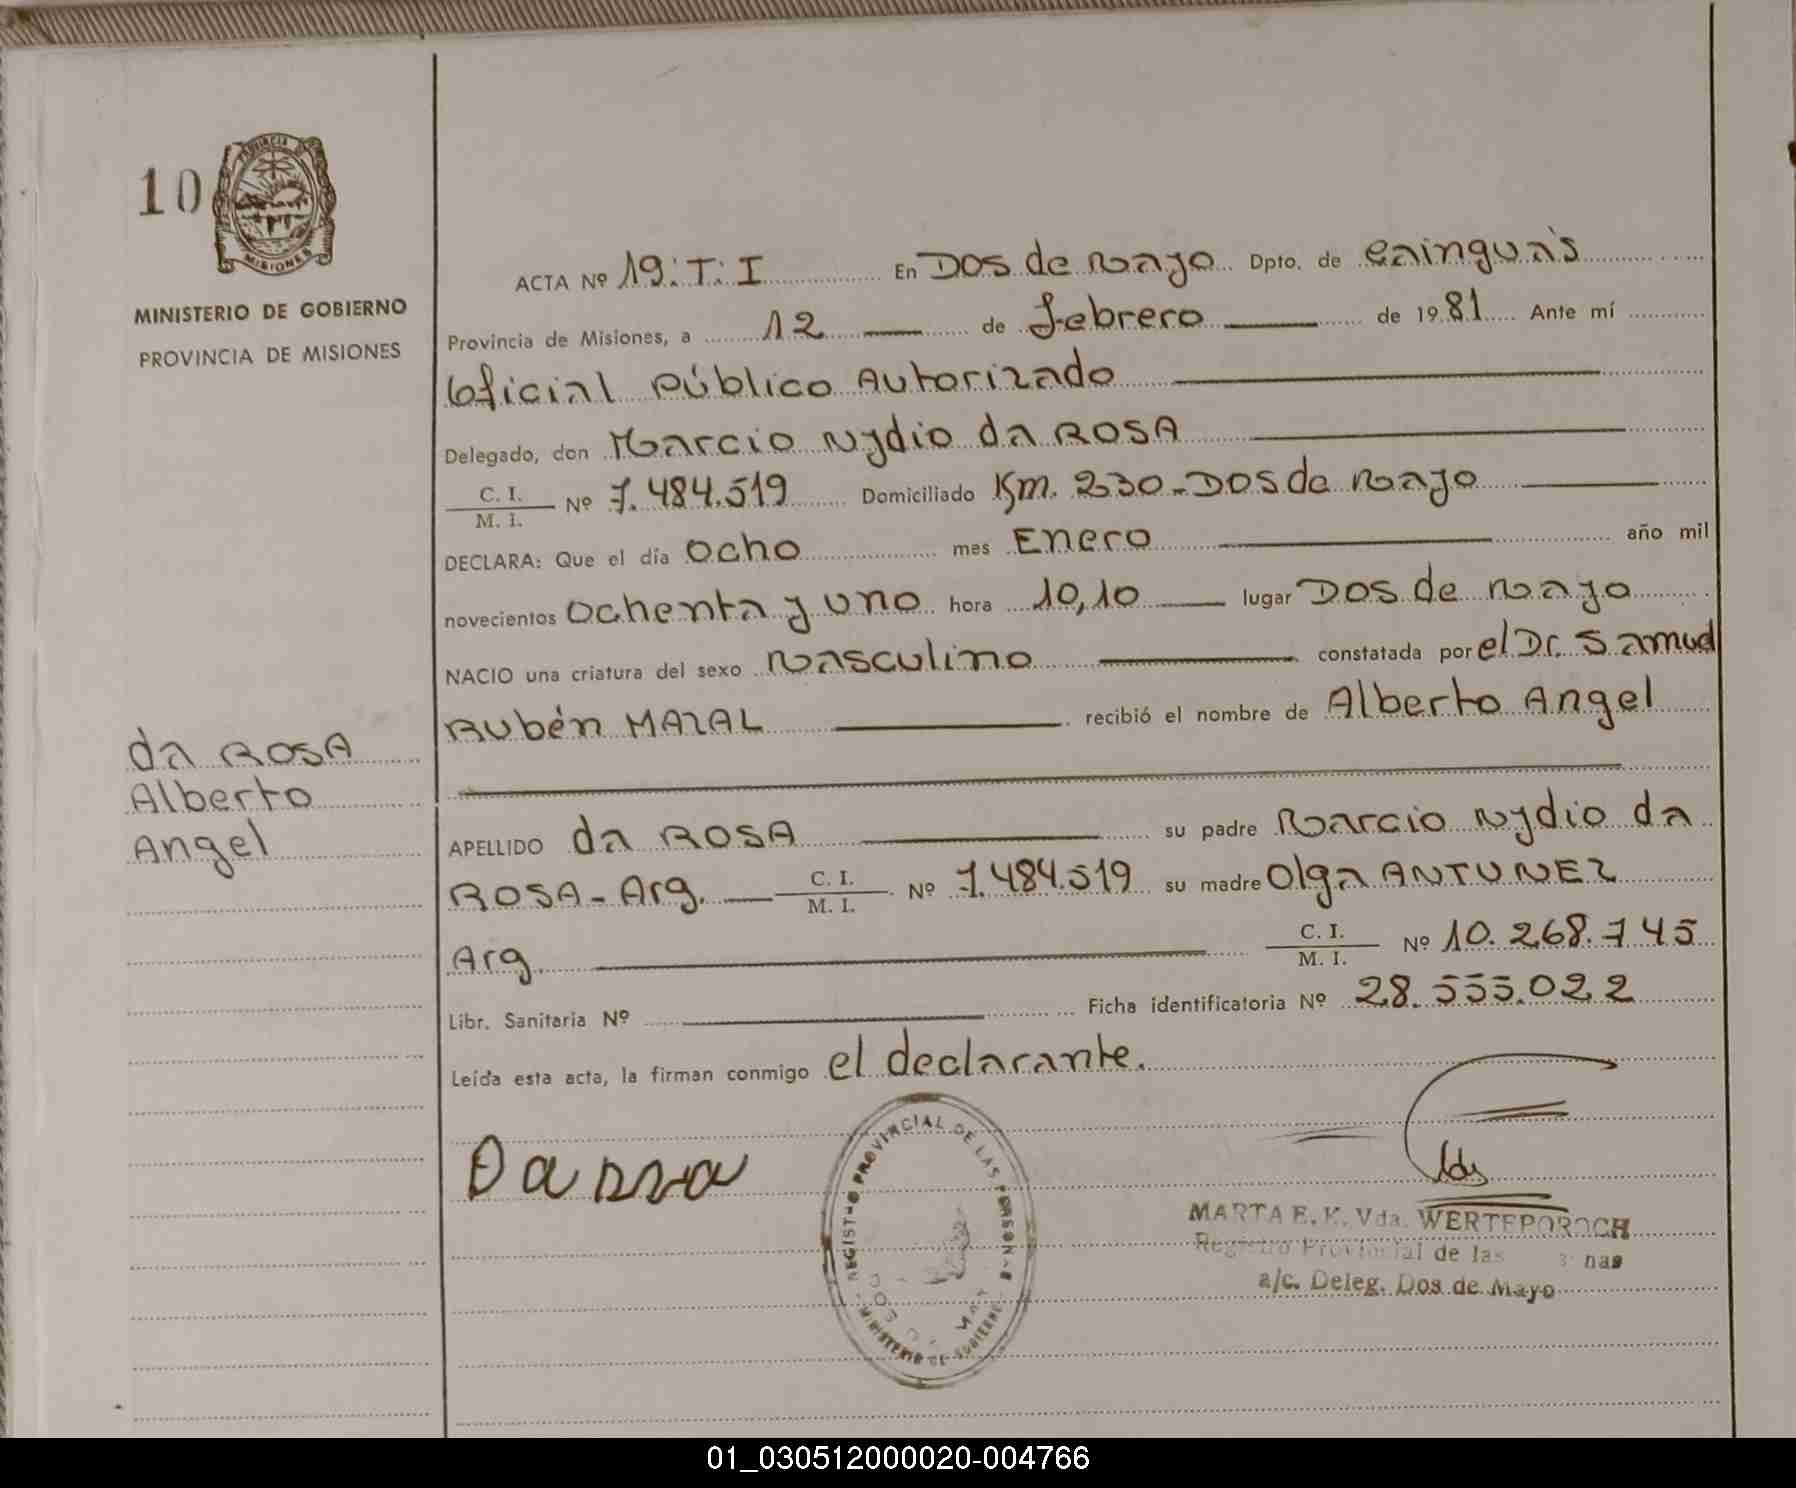 10
PROVINCIA DE
MISIONES
MINISTERIO DE GOBIERNO
PROVINCIA DE MISIONES
da ROSA
Alberto
Angel
ACTA Nº 19.T.I En Dos de Mayo Dpto. de Cainguás
Provincia de Misiones, a 12 de Febrero de 1981 Ante mí
Oficial Público Autorizado
Delegado, don Marcio Nydio da ROSA
C. I.
M. I. Nº 7.484.519 Domiciliado Km. 230-Dos de Mayo
DECLARA: Que el día ocho mes Enero año mil
novecientos ochenta y uno hora 10,10 lugar Dos de Mayo
NACIO una criatura del sexo Masculino constatada por el Dr. Samuel
Rubén MAZAL recibió el nombre de Alberto Angel
APELLIDO da ROSA su padre Marcio Nydio da
ROSA-Arg. C. I.
M. I. Nº 7.484.519 su madre Olga ANTUNEZ
Arg. C. I.
M. I. Nº 10.268.745
Libr. Sanitaria Nº Ficha identificatoria Nº 28.555.022
Leída esta acta, la firman conmigo el declarante.
PROVINCIAL DE LAS
MINISTERIO DE GOBIERNO
MARTA E. K. Vda. WERTEPOROCH
Registro Provincial de las
a/c. Deleg. Dos de Mayo
01_030512000020-004766